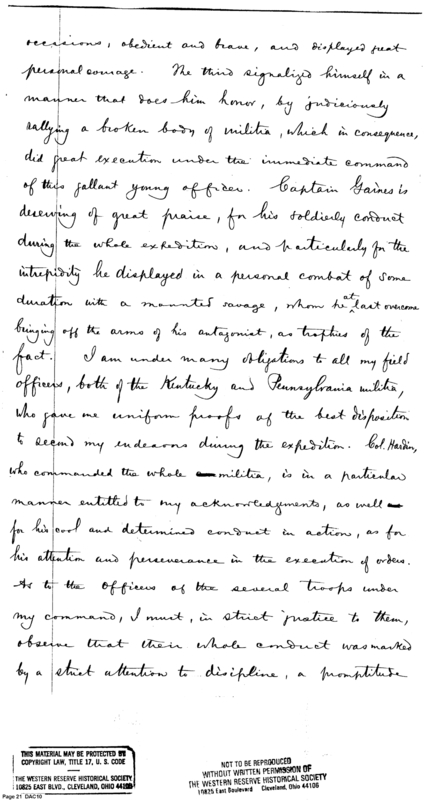 occasions, obedient and brave, and displayed great
personal courage. The third signalized himself in a
manner that does him honor, by judiciously
rallying a broken body of militia, which in consequence,
did great execution under the immediate command
of this gallant young officer. Captain Gaines is
deserving of great praise, for his soldierly conduct
during the whole expedition, and particularly for the
intrepidity he displayed in a personal combat of some
duration with a mounted savage, whom he at last overcome
bringing off the arms of his antagonist, as trophies of the
fact. I am under many obligations to all my field
officers, both of the Kentucky and Pennsylvania militia,
who gave me uniform proofs of the best disposition
to second my endeavors during the expedition. Col. Hardin,
who commanded the whole militia, is in a particular
manner entitled to my acknowledgements, as well
for his cool and determined conduct in action, as for
his attention and perseverance in the execution of orders.
As to the officers of the several troops under
my command, I must, in strict justice to them,
observe that their whole conduct was marked
by a strict attention to discipline, a promptitude
THIS MATERIAL MAY BE PROTECTED BY
COPYRIGHT LAW, TITLE 17, U. S. CODE
THE WESTERN RESERVE HISTORICAL SOCIETY
10825 EAST BLVD., CLEVELAND, OHIO 44106
NOT TO BE REPRODUCED
WITHOUT WRITTEN PERMISSION OF
THE WESTERN RESERVE HISTORICAL SOCIETY
10825 East Boulevard Cleveland, Ohio 44106
Page 21 DAC10